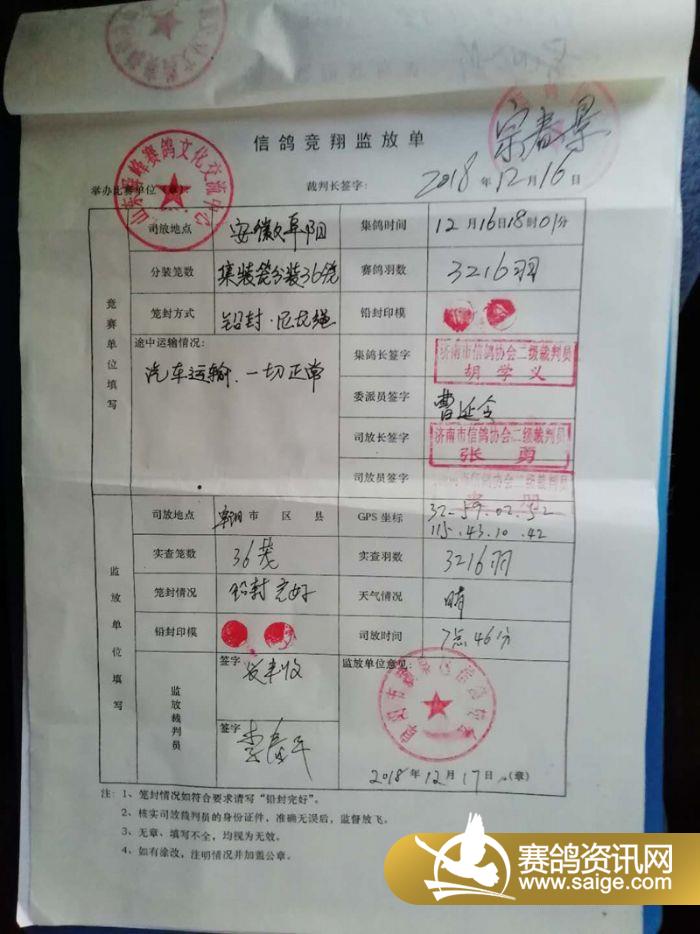 信鸽竞翔监放单
宗春景
举办比赛单位（章）： 裁判长签字： 2018年12月16日
山东 峰赛鸽文化交流中心
竞赛单位填写
司放地点 安徽阜阳 集鸽时间 12月16日18时01分
分装笼数 集装笼分装36笼 赛鸽羽数 3216羽
笼封方式 铅封·尼龙绳 铅封印模
途中运输情况： 集鸽长签字 济南市信鸽协会二级裁判员
胡学义
汽车运输.一切正常 委派员签字 曹延令
司放长签字 济南市信鸽协会二级裁判员
张勇
司放员签字
监放单位填写
司放地点 阜阳市 区 县 GPS坐标 32.59.02.52
115.43.10.42
实查笼数 36笼 实查羽数 3216羽
笼封情况 铅封完好 天气情况 晴
铅封印模 司放时间 7点46分
监放裁判员 签字 监放单位意见：
签字
2018年12月17日（章）
注：1、笼封情况如符合要求请写“铅封完好”。
2、核实司放裁判员的身份证件，准确无误后，监督放飞。
3、无章、填写不全，均视为无效。
4、如有涂改，注明情况并加盖公章。
赛鸽资讯网
www.saige.com